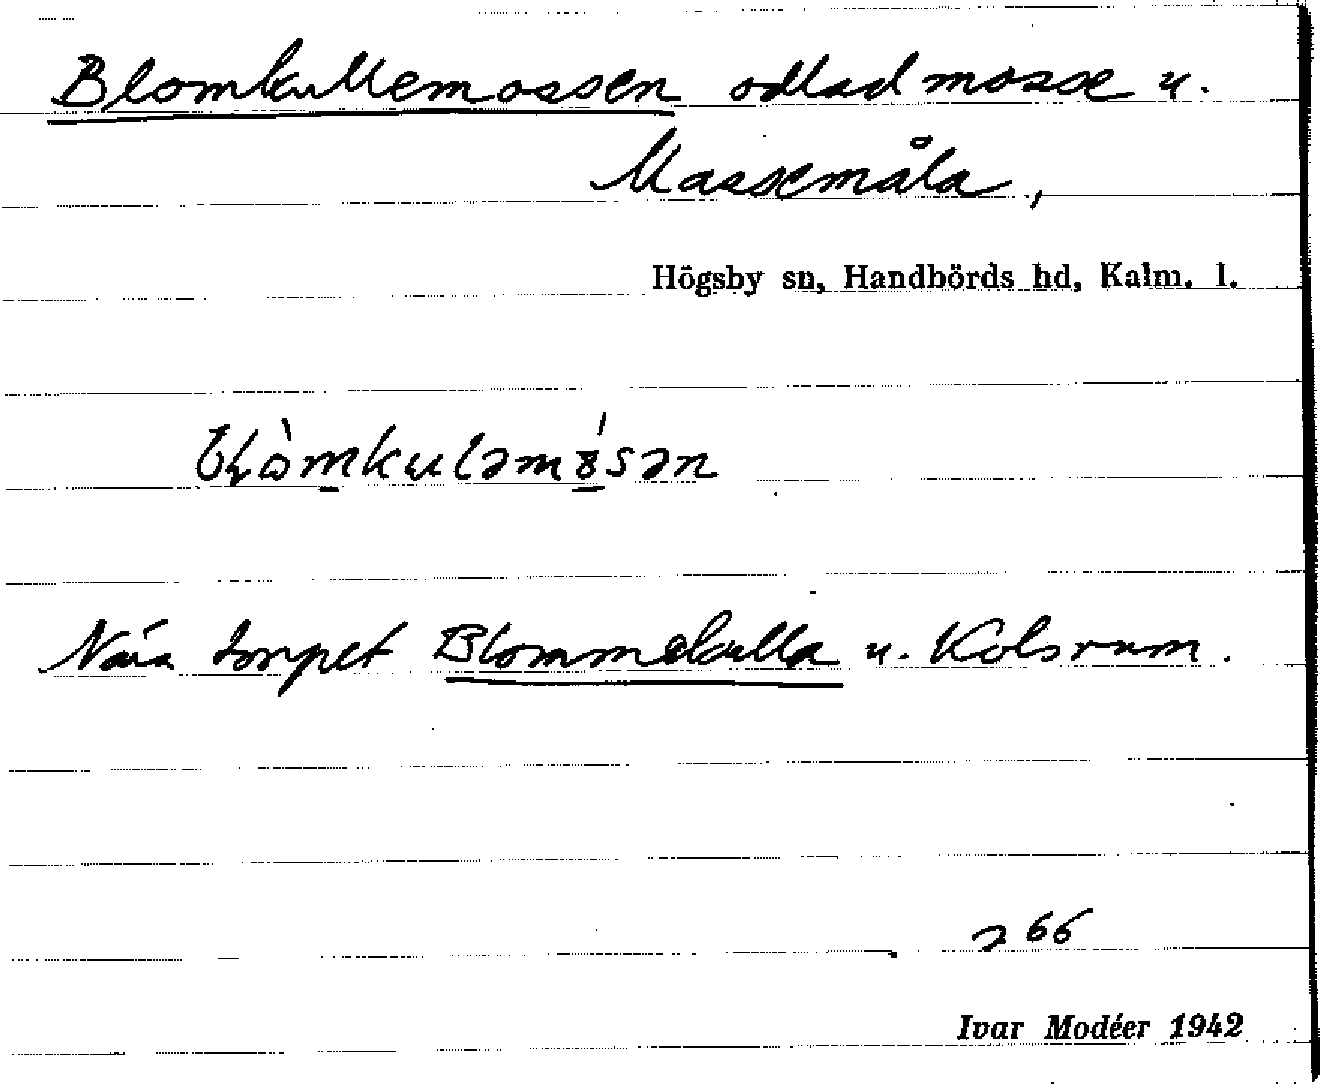 Blomkullemossen odlad mosse u.
Massemåla,
Högsby sn, Handbörds hd, Kalm. l.
Nära torpet Blommekulla u. Kolsrum.
266
Ivar Modéer 1942